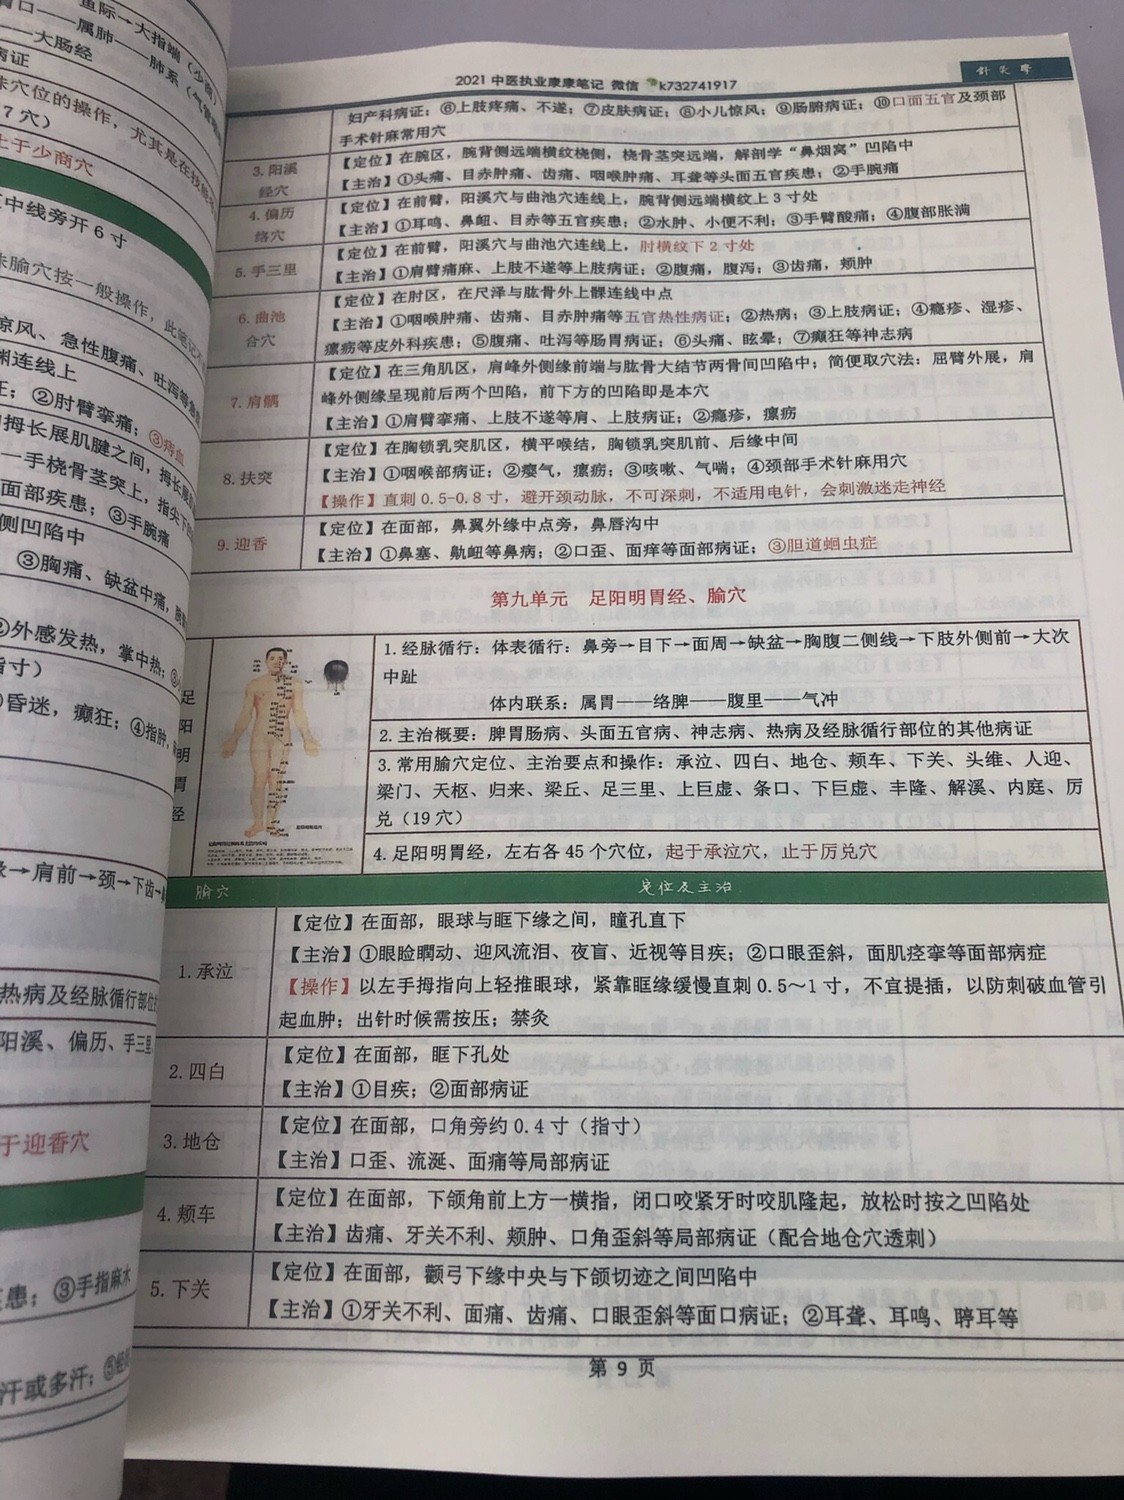 鱼际→大指端（少商）
胃口——属肺——肺系（气管
——大肠经
病证
殊穴位的操作，尤其是在技能
7穴）
止于少商穴
中线旁开6寸
殊腧穴按一般操作，此笔记不
惊风、急性腹痛、吐泻等急症
渊连线上
证；②肘臂挛痛；③痔血
拇长展肌腱之间，拇长展肌
一手桡骨茎突上，指尖下的
面部疾患；③手腕痛
侧凹陷中
③胸痛、缺盆中痛，
②外感发热，掌中热；③小
指寸）
昏迷，癫狂；④指肿，
→肩前→颈→下齿→
热病及经脉循行部位
阳溪、偏历、手三里、
于迎香穴
疾患；③手指麻木
汗或多汗；⑤
2021 中医执业康康笔记 微信 k732741917
针灸学
妇产科病证；⑥上肢疼痛、不遂；⑦皮肤病证；⑧小儿惊风；⑨肠腑病证；⑩口面五官及颈部
手术针麻常用穴
3.阳溪
经穴
【定位】在腕区，腕背侧远端横纹桡侧，桡骨茎突远端，解剖学“鼻烟窝”凹陷中
【主治】①头痛、目赤肿痛、齿痛、咽喉肿痛、耳聋等头面五官疾患；②手腕痛
4.偏历
络穴
【定位】在前臂，阳溪穴与曲池穴连线上，腕背侧远端横纹上3寸处
【主治】①耳鸣、鼻衄、目赤等五官疾患；②水肿、小便不利；③手臂酸痛；④腹部胀满
5.手三里
【定位】在前臂，阳溪穴与曲池穴连线上，肘横纹下2寸处
【主治】①肩臂痛麻、上肢不遂等上肢病证；②腹痛，腹泻；③齿痛，颊肿
6.曲池
合穴
【定位】在肘区，在尺泽与肱骨外上髁连线中点
【主治】①咽喉肿痛、齿痛、目赤肿痛等五官热性病证；②热病；③上肢病证；④瘾疹、湿疹、
瘰疬等皮外科疾患；⑤腹痛、吐泻等肠胃病证；⑥头痛、眩晕；⑦癫狂等神志病
7.肩髃
【定位】在三角肌区，肩峰外侧缘前端与肱骨大结节两骨间凹陷中；简便取穴法：屈臂外展，肩
峰外侧缘呈现前后两个凹陷，前下方的凹陷即是本穴
【主治】①肩臂挛痛、上肢不遂等肩、上肢病证；②瘾疹，瘰疬
8.扶突
【定位】在胸锁乳突肌区，横平喉结，胸锁乳突肌前、后缘中间
【主治】①咽喉部病证；②瘿气，瘰疬；③咳嗽、气喘；④颈部手术针麻用穴
【操作】直刺0.5-0.8寸，避开颈动脉，不可深刺，不适用电针，会刺激迷走神经
9.迎香
【定位】在面部，鼻翼外缘中点旁，鼻唇沟中
【主治】①鼻塞、鼽衄等鼻病；②口歪、面痒等面部病证；③胆道蛔虫症
第九单元 足阳明胃经、腧穴
足
阳
明
胃
经
1.经脉循行：体表循行：鼻旁→目下→面周→缺盆→胸腹二侧线→下肢外侧前→大次
中趾
体内联系：属胃——络脾——腹里——气冲
2.主治概要：脾胃肠病、头面五官病、神志病、热病及经脉循行部位的其他病证
3.常用腧穴定位、主治要点和操作：承泣、四白、地仓、颊车、下关、头维、人迎、
梁门、天枢、归来、梁丘、足三里、上巨虚、条口、下巨虚、丰隆、解溪、内庭、厉
兑（19穴）
4.足阳明胃经，左右各45个穴位，起于承泣穴，止于厉兑穴
腧穴 定位及主治
1.承泣
【定位】在面部，眼球与眶下缘之间，瞳孔直下
【主治】①眼睑瞤动、迎风流泪、夜盲、近视等目疾；②口眼歪斜，面肌痉挛等面部病症
【操作】以左手拇指向上轻推眼球，紧靠眶缘缓慢直刺0.5～1寸，不宜提插，以防刺破血管引
起血肿；出针时候需按压；禁灸
2.四白
【定位】在面部，眶下孔处
【主治】①目疾；②面部病证
3.地仓
【定位】在面部，口角旁约0.4寸（指寸）
【主治】口歪、流涎、面痛等局部病证
4.颊车
【定位】在面部，下颌角前上方一横指，闭口咬紧牙时咬肌隆起，放松时按之凹陷处
【主治】齿痛、牙关不利、颊肿、口角歪斜等局部病证（配合地仓穴透刺）
5.下关
【定位】在面部，颧弓下缘中央与下颌切迹之间凹陷中
【主治】①牙关不利、面痛、齿痛、口眼歪斜等面口病证；②耳聋、耳鸣、聤耳等
第 9 页